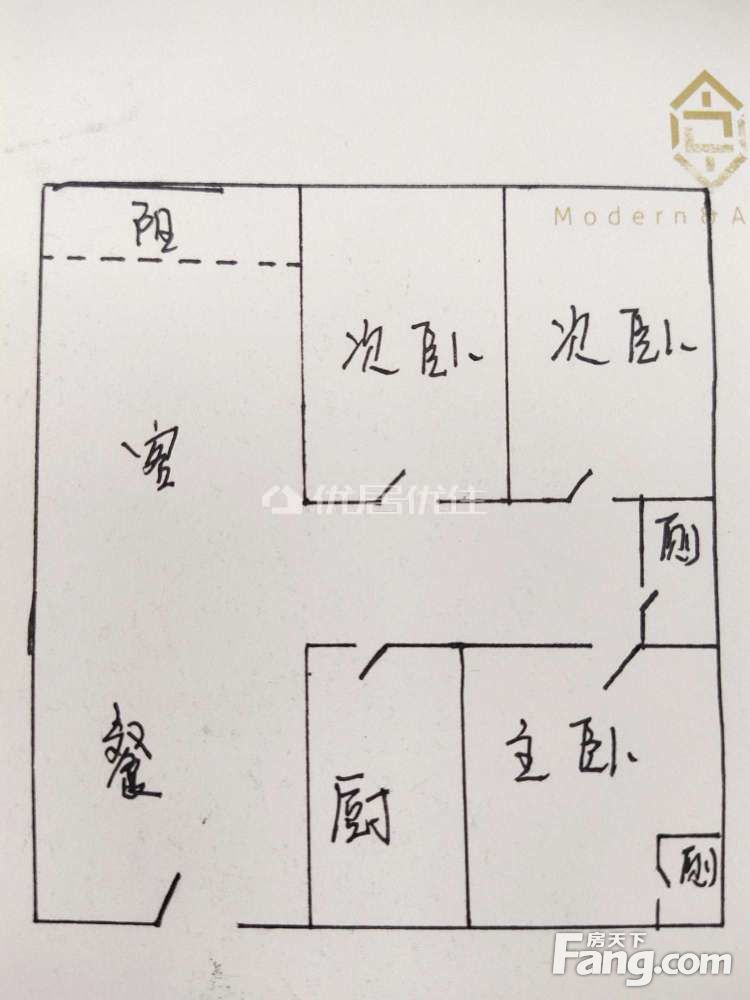 Modern&A
阳
次卧
次卧
客
优居优住
厕
餐
主卧
厨
厕
房天下
Fang.com